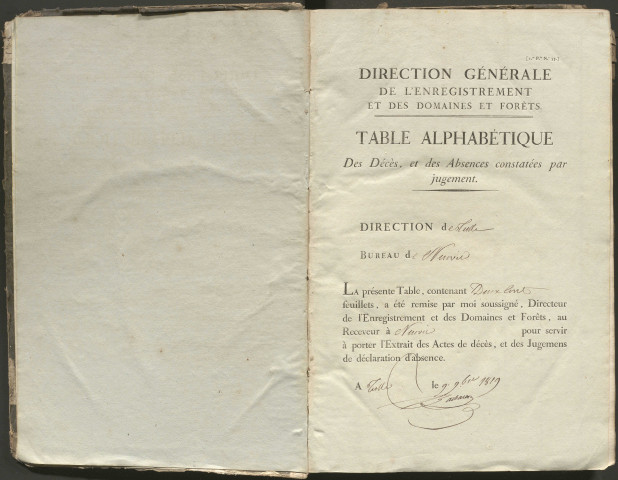 DIRECTION GÉNÉRALE
DE L'ENREGISTREMENT
ET DES DOMAINES ET FORÊTS.
TABLE ALPHABÉTIQUE
Des Décès, et des Absences constatées par
jugement.
DIRECTION de Tulle
BUREAU de Neuvic
LA présente Table, contenant Deux Cent
feuillets, a été remise par moi soussigné, Directeur
de l'Enregistrement et des Domaines et Forêts, au
Receveur à Neuvic pour servir
à porter l'Extrait des Actes de décès, et des Jugemens
de déclaration d'absence.
A Tulle le 9 9bre 1819